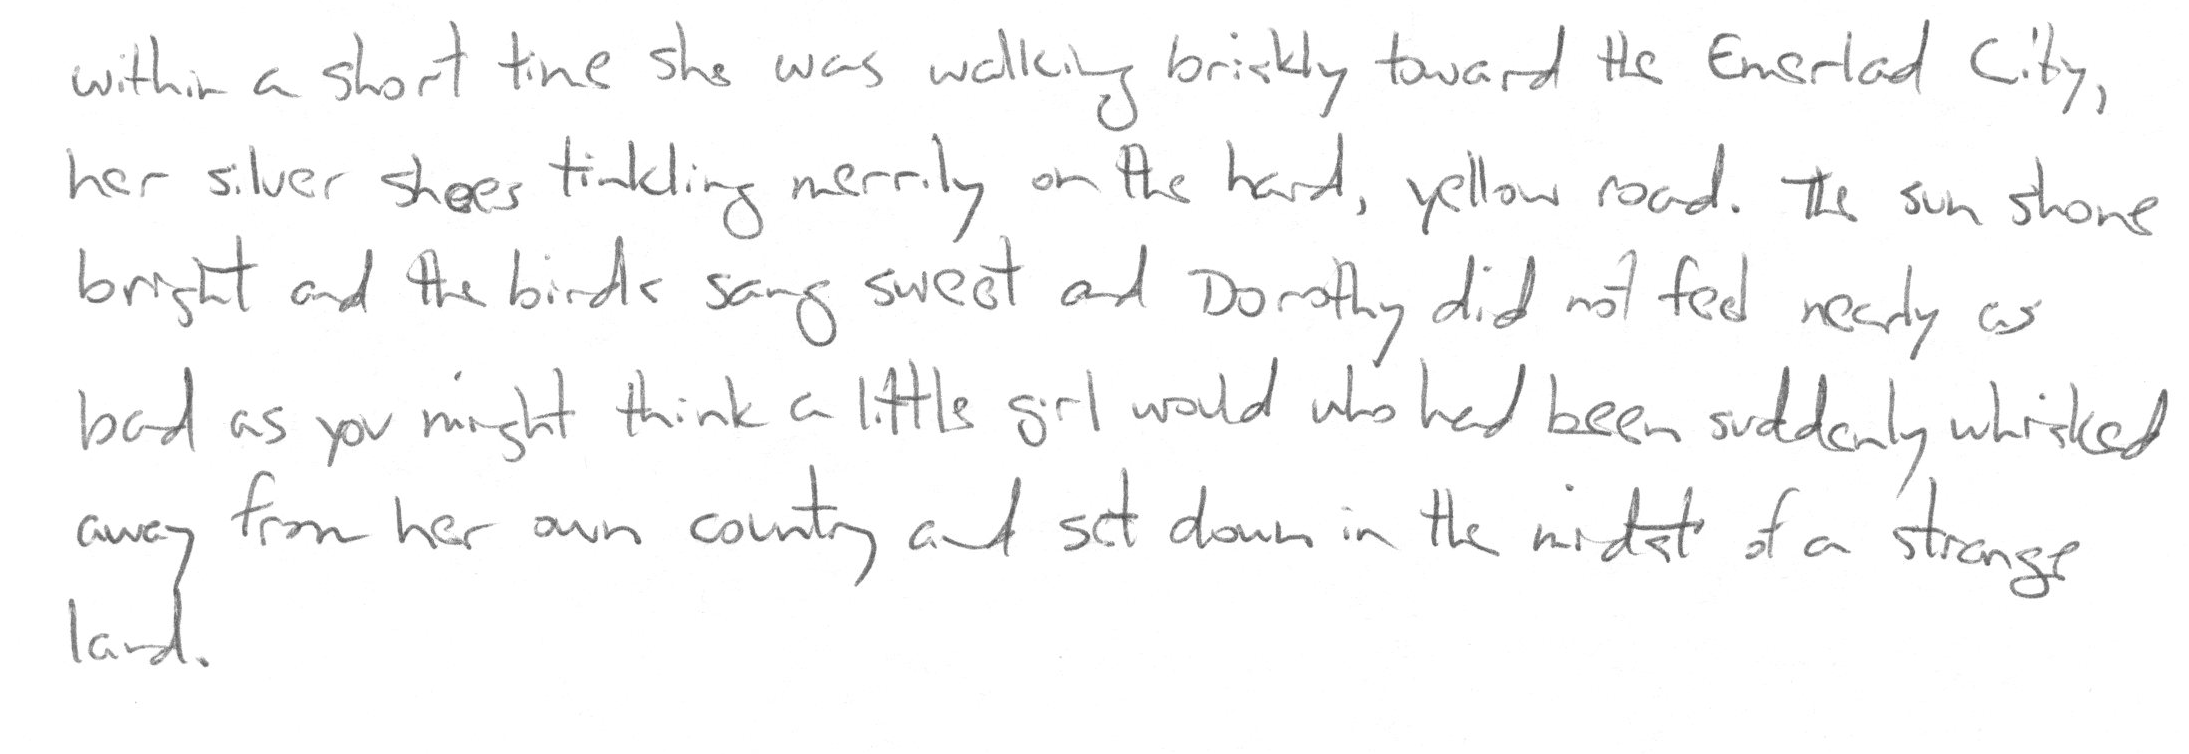 within a short time she was walking briskly toward the Emerlad City,
her silver shoes tinkling merrily on the hard, yellow road. The sun shone
bright and the birds sang sweet and Dorothy did not feel nearly as
bad as you might think a little girl would who had been suddenly whisked
away from her own country and set down in the midst of a strange
land.